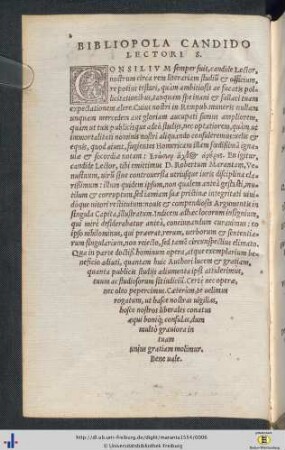 BIBLIOPOLA CANDIDO
LECTORI S.
CONSILIVM semper fuit, candide Lector,
nostrum circa rem literariam studiū & officium,
re potius testari, quàm ambitiosis ac fucatis pol-
licitationibus, tanquam spe inani & fallaci tuam
expectationem alere. Cuius nostri in Rempub. muneris nullam
unquam mercedem aut gloriam aucupati sumus ampliorem,
quàm ut tuis publicisque adeò studijs, nec
immortalitati nominis nostri aliquando
eqsês, quod aiunt, fugientes Homericam illam
ignauiæ & socordiæ notam: Exigitur,
candide Lector, tibi emittimus D. Robertum Marantam, Ve-
nusinum, uirū sine controuersia utriusque iuris disciplina cla-
rissimum: illum quidem ipsum, non qualem antea
rum & corruptum, sed tantum suæ pristinæ integritati undi-
que niueri restitutum: nouis & compendiosis Argumentis in
singula Capita, illustratum. Indicem adhæc locorum insignium,
qui meritò desiderabatur antea, concinnandum curauimus: eo
ipso nobiliorem, quò præter rerum, uerborum & sententia-
rum singularium, non reiecto, sed tamē circunspectius elimato.
Qua in parte doctiss. hominum opera, atque exemplarium be-
neficio adiuti, quantam huic Authori lucem & gratiam,
quanta publicis studijs alimenta ipsi attulerimus,
tuum ac studiosorum sit iudicij. Certè nec operæ,
nec oleo pepercimus. Cæterùm te uelim
rogatum, ut hasce nostras uigilias,
hosce nostros liberales conatus
æqui boniq́; consulas, dum
multò grauiora in
tuam
unius gratiam molimur.
Bene uale.
http://dl.ub.uni-freiburg.de/diglit/maranta1554/0006
© Universitätsbibliothek Freiburg